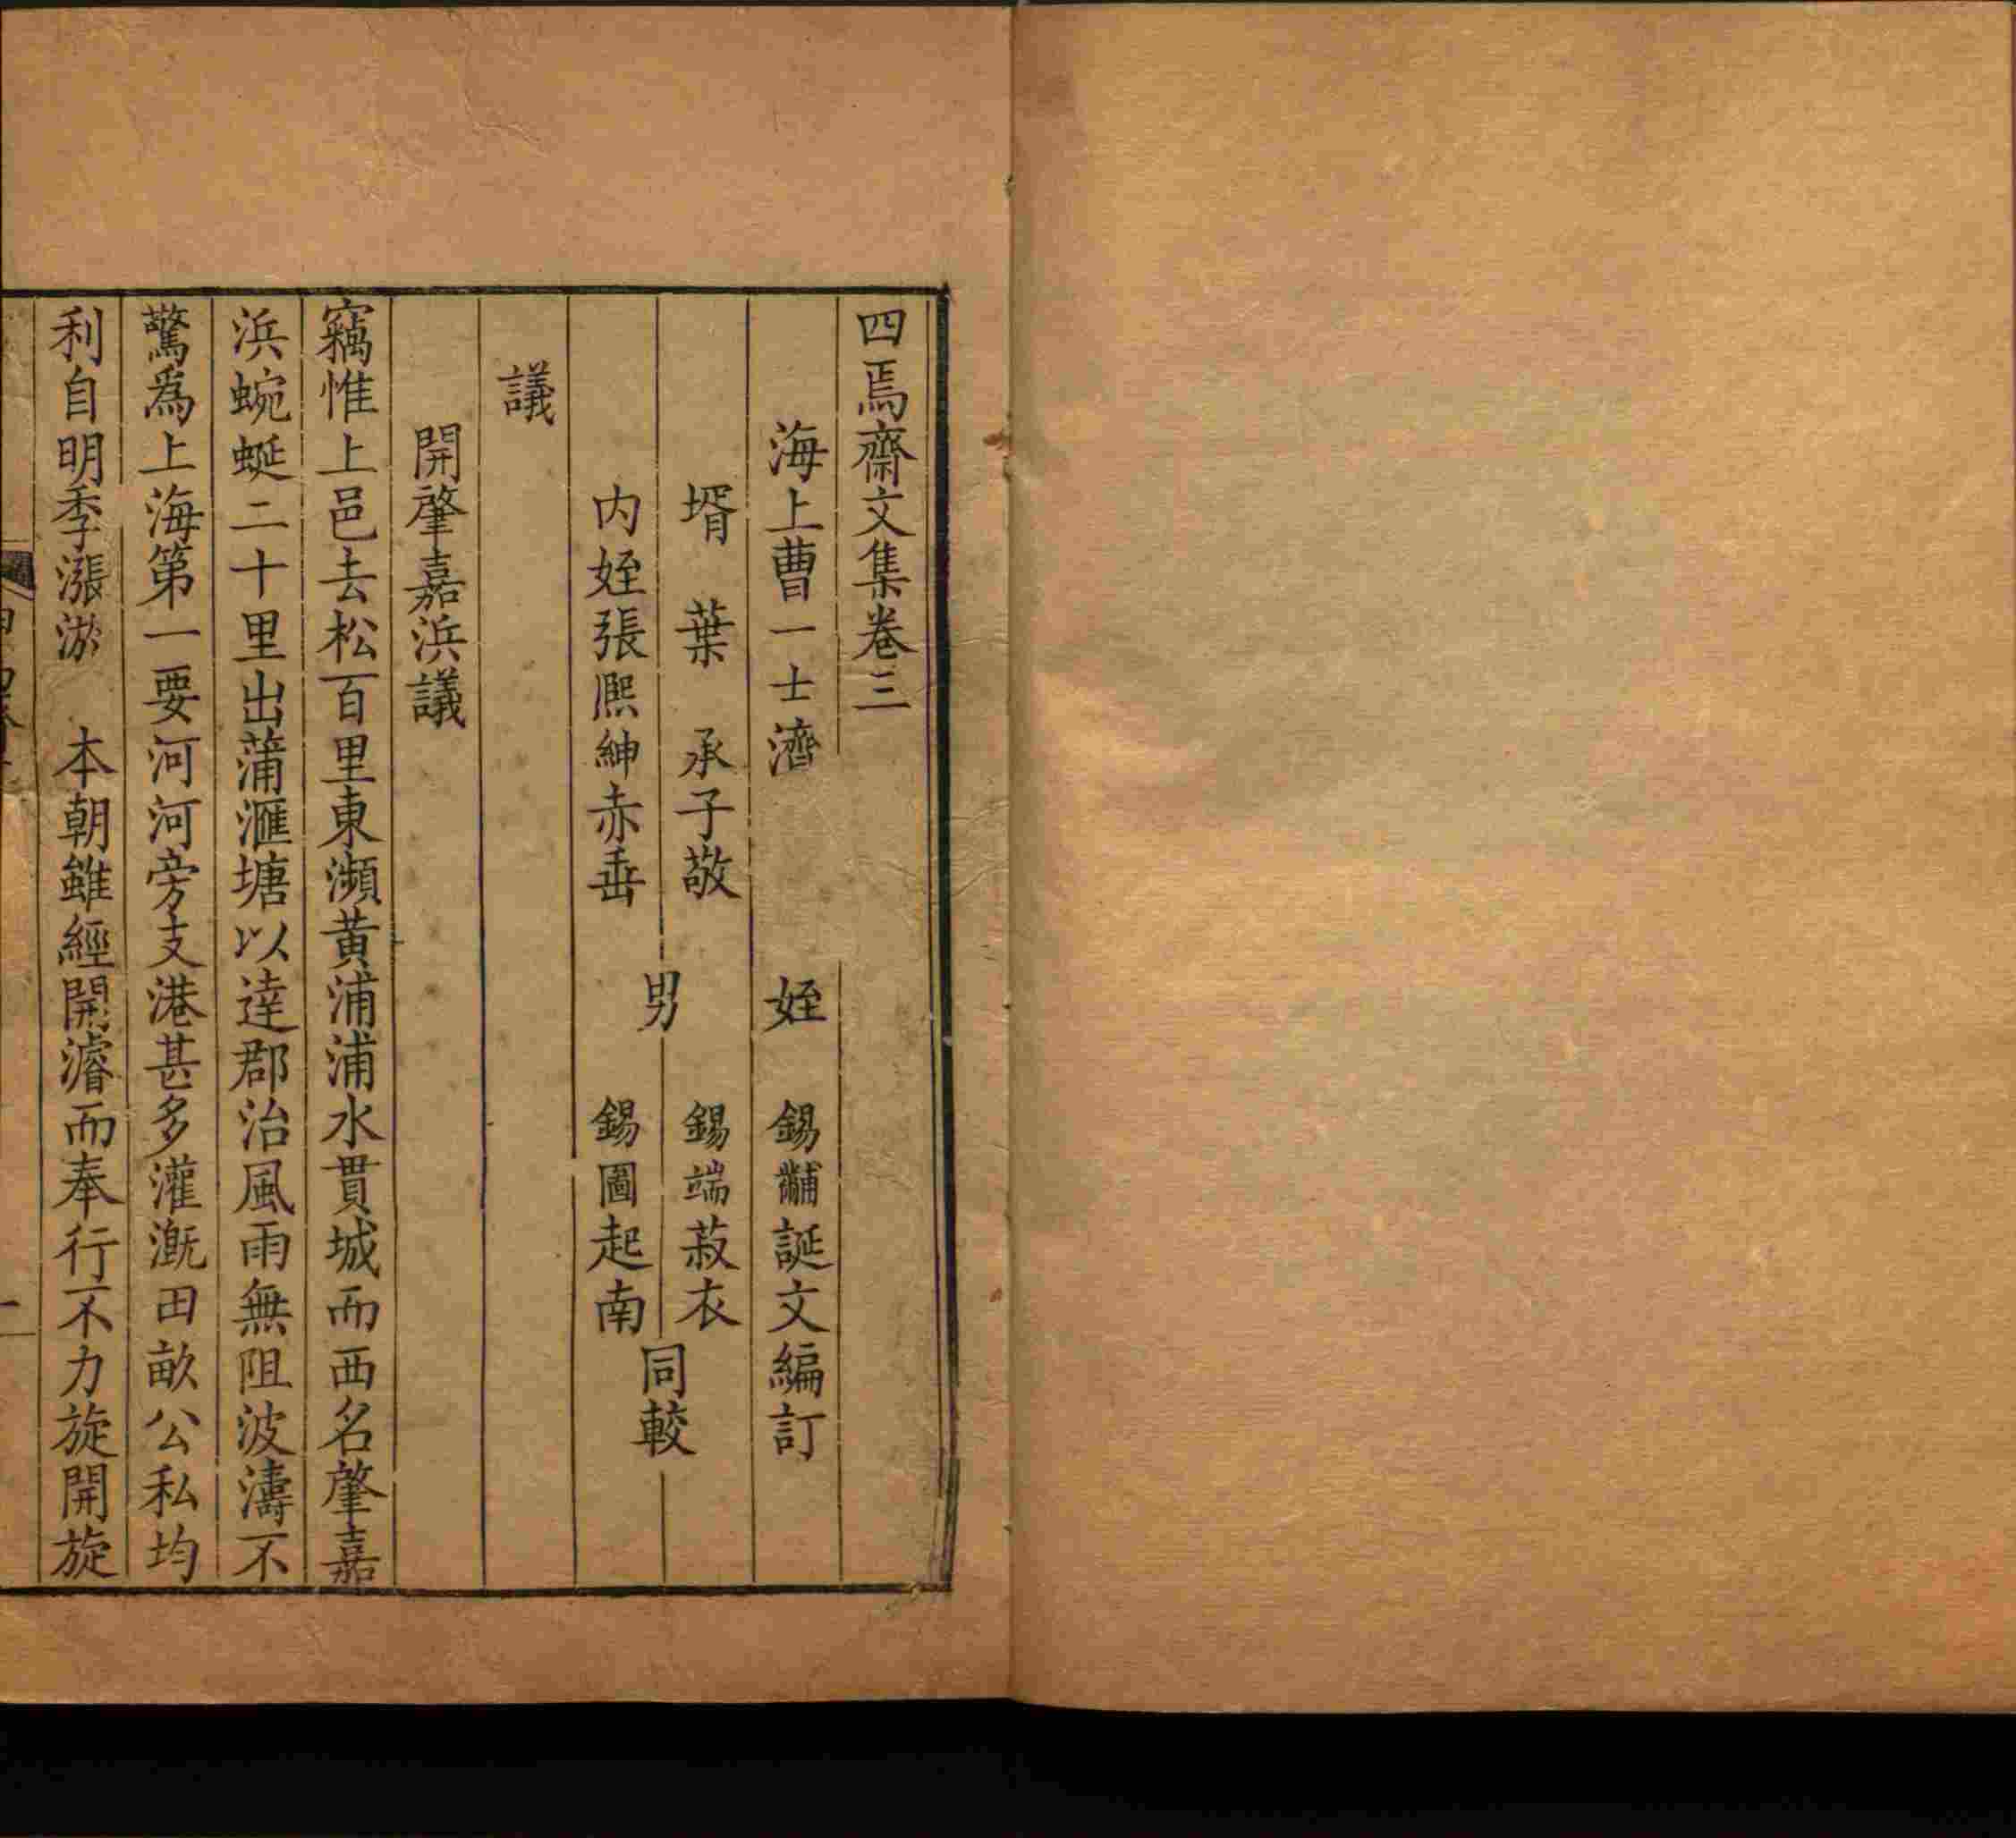 四焉齋文集卷三
海上曹一士濟 姪 錫黼誕文編訂
壻 葉 承子敬 錫端菽衣
男 同較
内姪張熈紳赤壵 錫圖起南
議
開肇嘉浜議
竊惟上邑去松百里東瀕黃浦浦水貫城而西名肇嘉
浜蜿蜒二十里出蒲滙塘以達郡治風雨無阻波濤不
驚爲上海第一要河河旁支港甚多灌漑田畝公私均
利自明季漲淤 本朝雖經開濬而奉行不力旋開旋